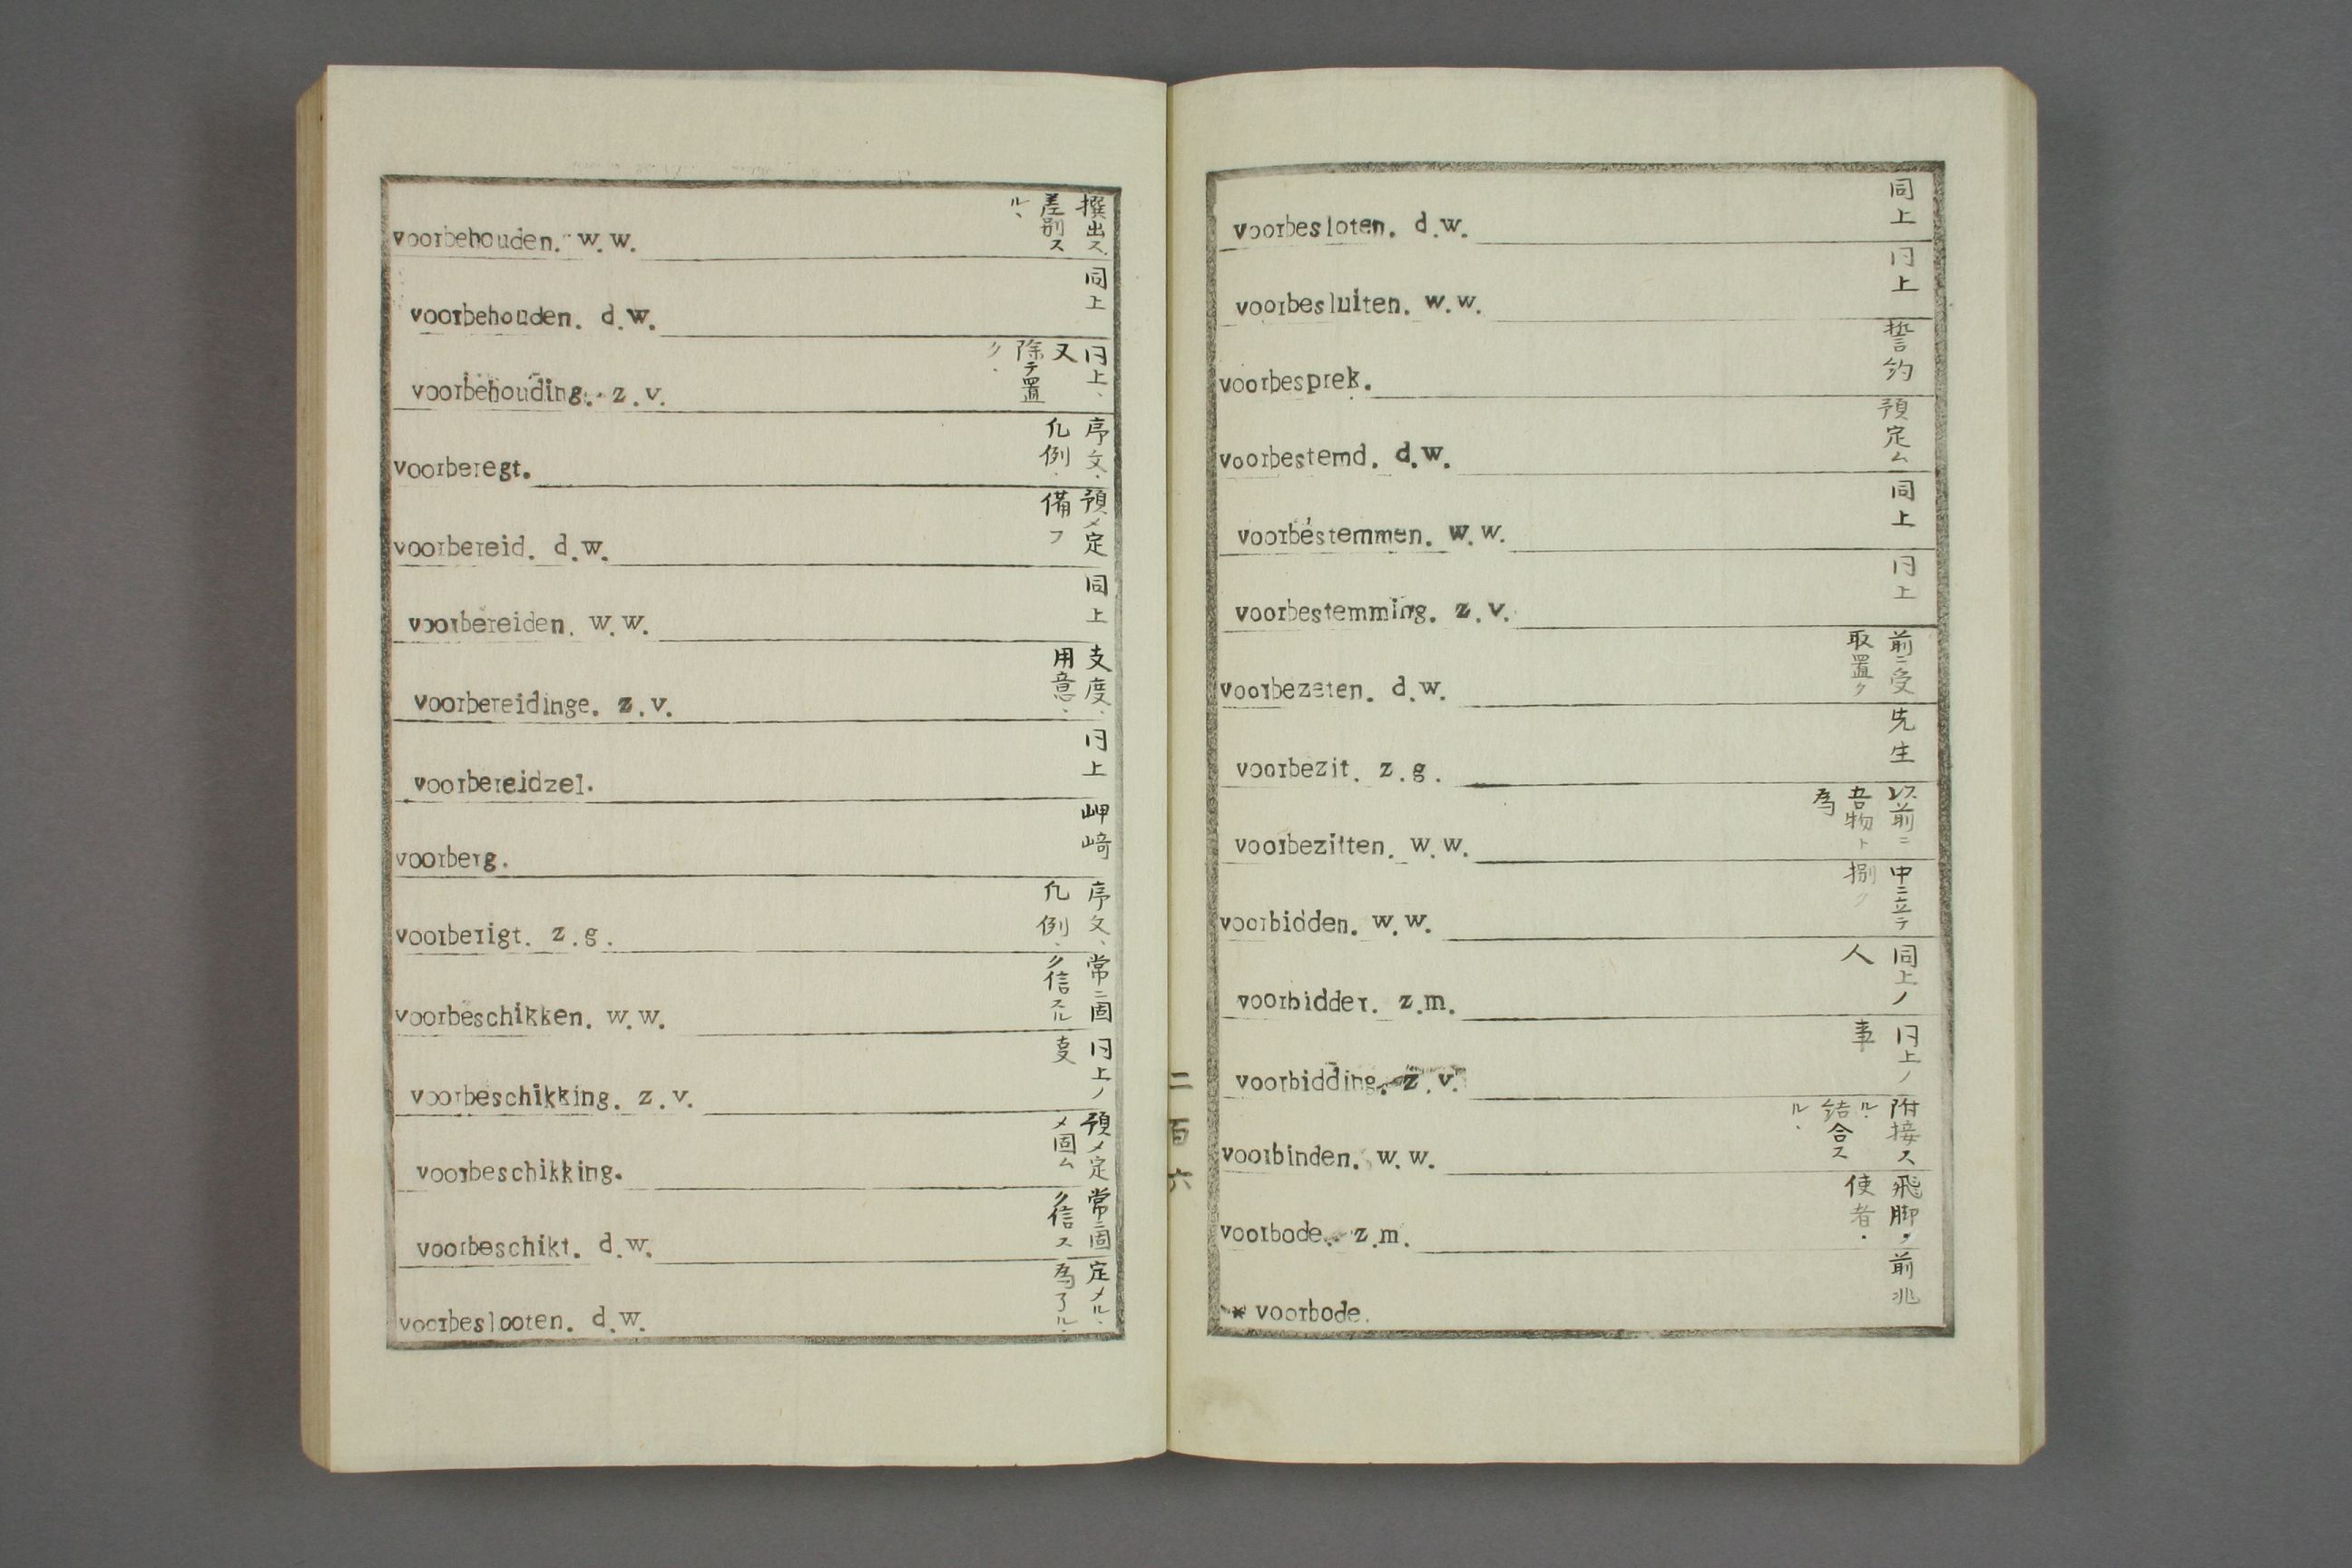 voorbehouden. w.w. 撰出ス、差别スル、
voorbehouden. d.w. 同上
voorbehouding. z.v. 同上、又除テ置ク.
voorberegt. 序文、凡例.
voorbereid. d.w. 預メ定備フ
voorbereiden. w.w. 同上
voorbereidinge. z.v. 支度、用意、
voorbereidzel. 同上
voorberg. 岬﨑
voorberigt. z.g. 序文、凡例.
voorbeschikken. w.w. 常ニ固ク信スル
voorbeschikking. z.v. 同上ノ𠮷
voorbeschikking. 預メ定メ固ム
voorbeschikt. d.w. 常ニ固ク信ス
voorbeslooten. d.w. 定メル、為了ル.
二百六
voorbesloten. d.w. 同上
voorbesluiten. w.w. 同上
voorbesprek. 誓約
voorbestemd. d.w. 預定ム
voorbestemmen. w.w. 同上
voorbestemming. z.v. 同上
voorbezeten. d.w. 前ニ受取置ク
voorbezit. z.g. 先生
voorbezitten. w.w. 以前ニ吾物ト為
voorbidden. w.w. 中ニ立テ捌ク
voorbidder. z.m. 同上ノ人
voorbidding. z.v. 同上ノ事
voorbinden. w.w. 附接スル.結合スル.
voorbode. z.m. 飛脚,使者.
* voorbode. 前兆